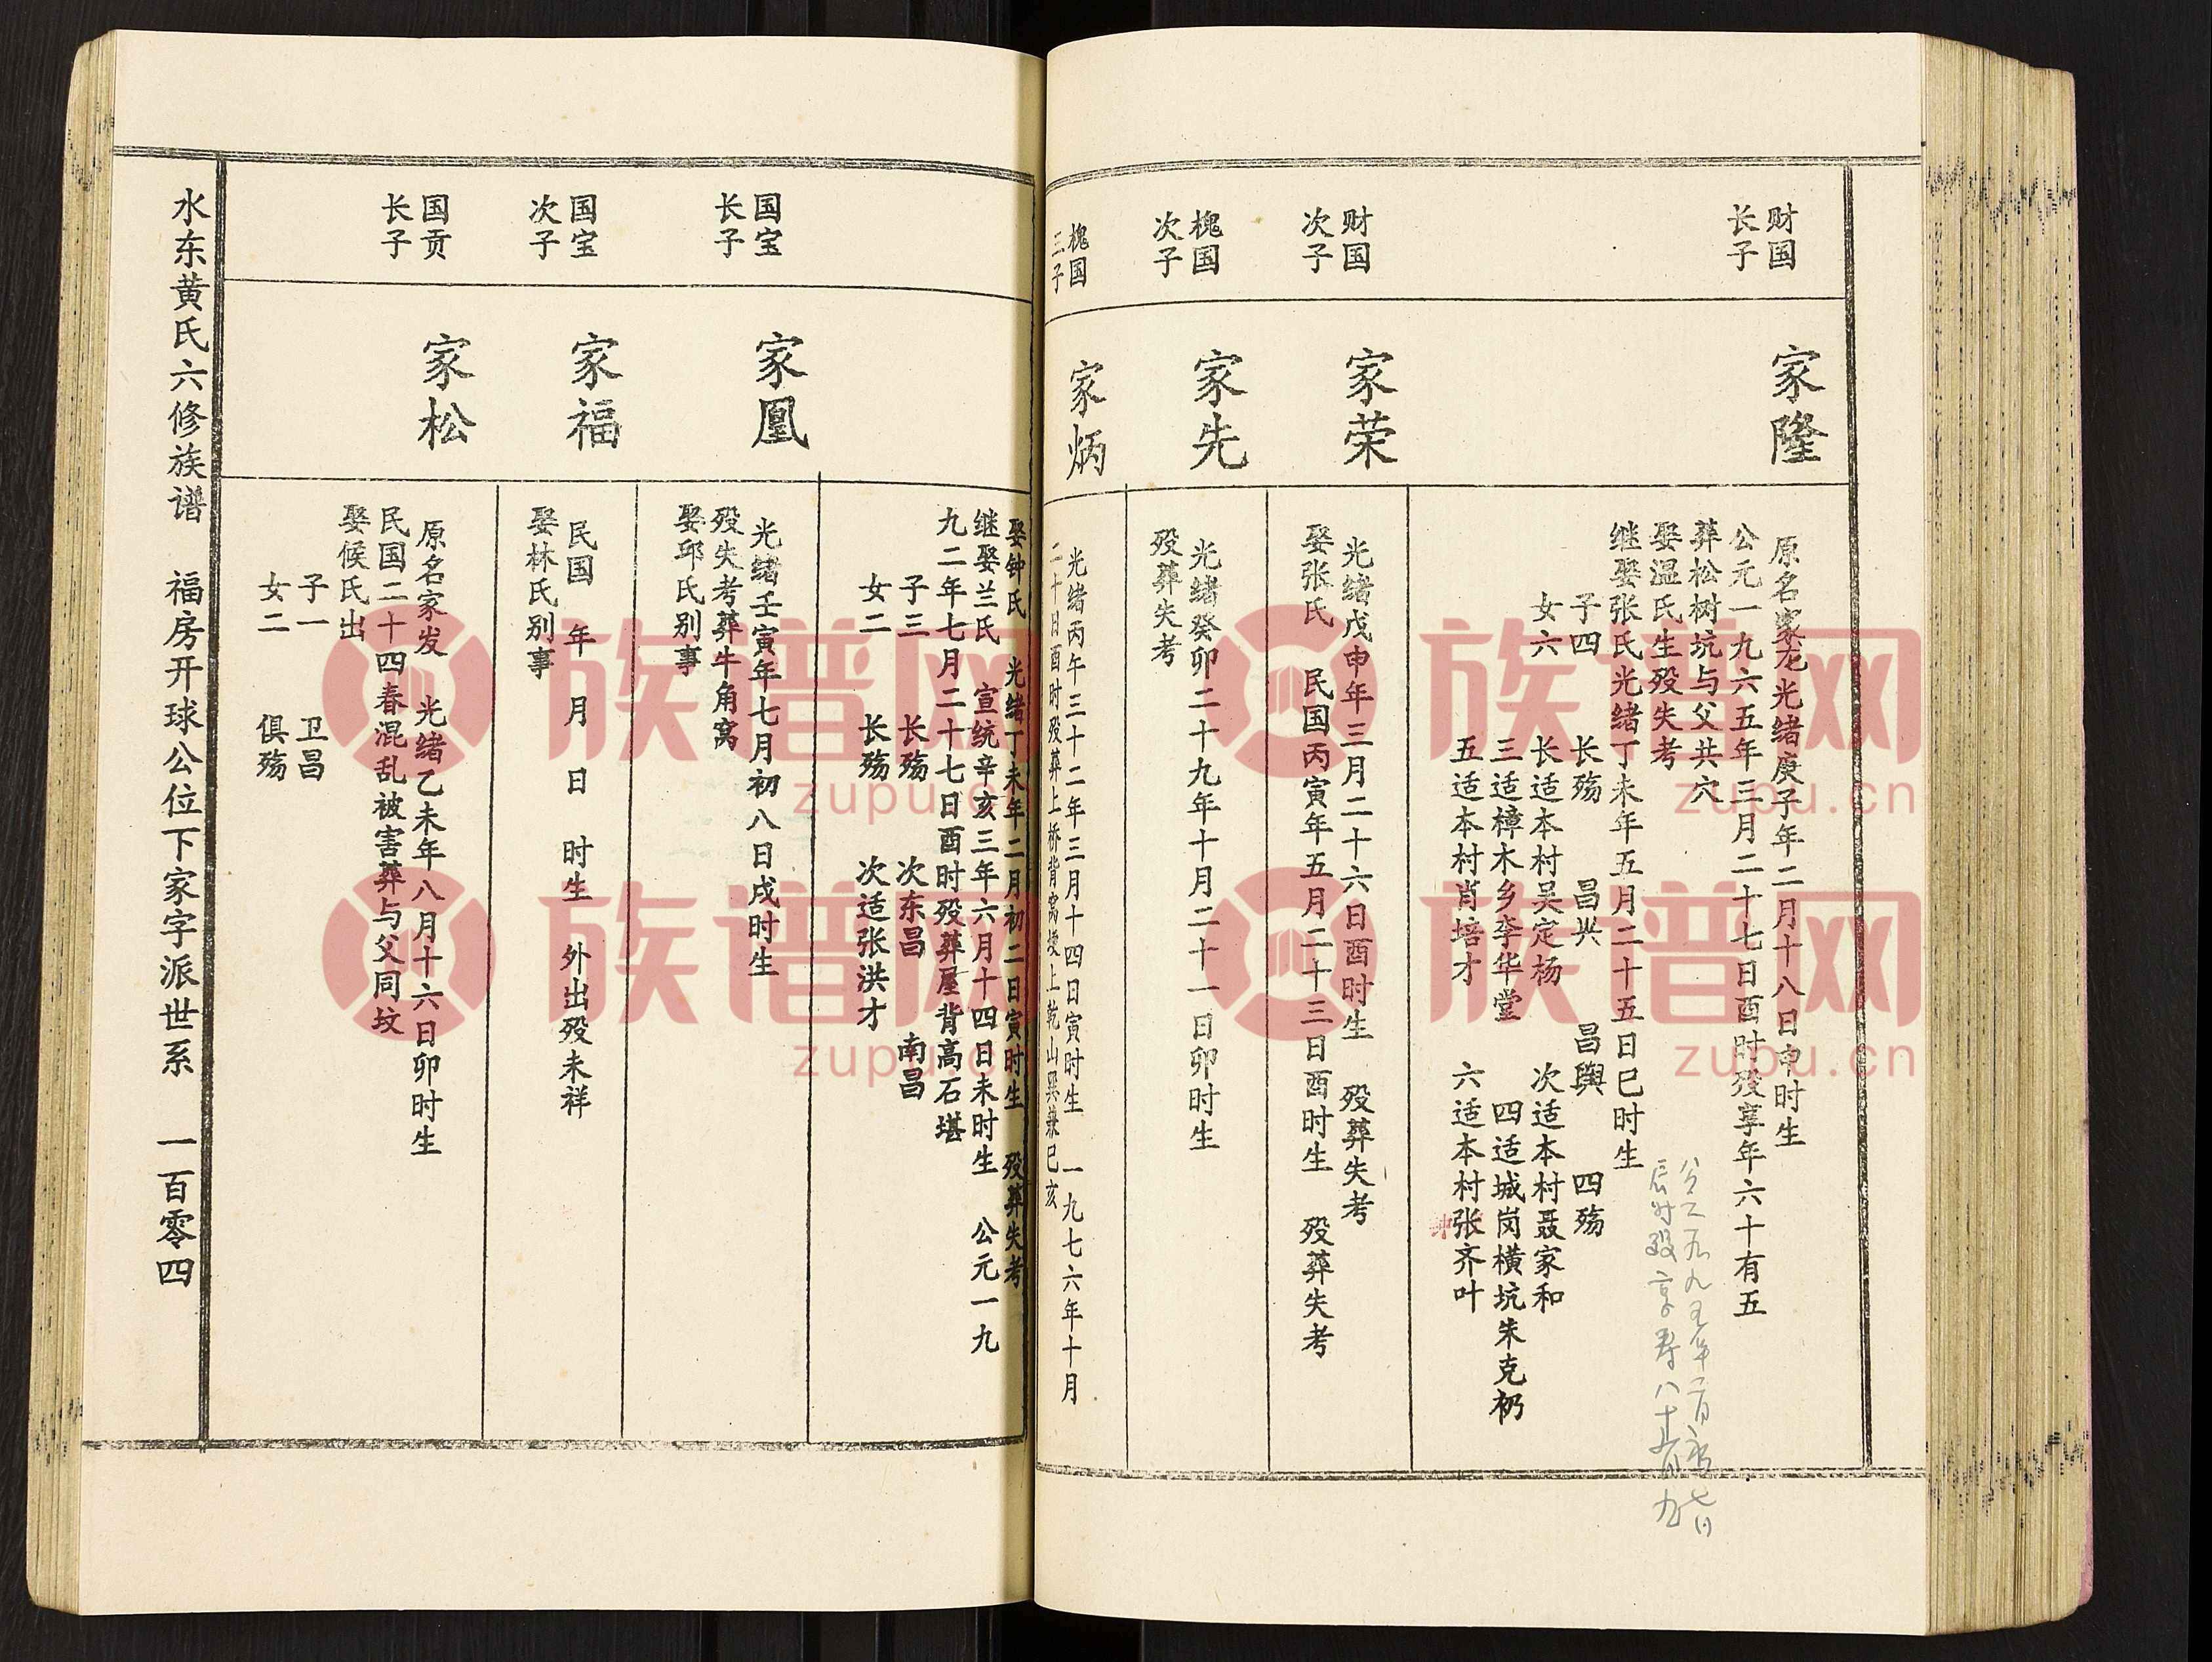 财国
长子
家隆
原名家龙光绪庚子年二月十八日申时生
公元一九六五年三月二十七日酉时殁享年六十有五
葬松树坑与父共穴
娶温氏生殁失考
继娶张氏光绪丁未年五月二十五日巳时生
辰时殁享寿八十
子四 长殇 昌兴 昌舆 四殇
女六 长适本村吴定杨 次适本村聂家和
三适樟木乡李华堂 四适城岗横坑朱克礽
五适本村肖培才 六适本村张齐叶
财国
次子
家荣
光绪戊申年三月二十六日酉时生 殁葬失考
娶张氏 民国丙寅年五月二十三日酉时生 殁葬失考
槐国
次子
家先
光绪癸卯二十九年十月二十一日卯时生
殁葬失考
槐国
三子
家炳
光绪丙午三十二年三月十四日寅时生 一九七六年十月
二十日酉时殁葬上桥背窝墢上乾山巽兼巳亥
娶钟氏 光绪丁未年二月初二日寅时生 殁葬失考
继娶兰氏 宣统辛亥三年六月十四日未时生 公元一九
九二年七月二十七日酉时殁葬屋背高石堪
子三 长殇 次东昌 南昌
女二 长殇 次适张洪才
国宝
长子
家凰
光绪壬寅年七月初八日戌时生
殁失考葬牛角窝
娶邱氏别事
国宝
次子
家福
民国 年 月 日 时生 外出殁未祥
娶林氏别事
国贡
长子
家松
原名家发 光绪乙未年八月十六日卯时生
民国二十四春混乱被害葬与父同坟
娶候氏出
子一 卫昌
女二 俱殇
水东黄氏六修族谱 福房开球公位下家字派世系 一百零四
族谱网
zupu.cn
族谱网
zupu.cn
族谱网
zupu.cn
族谱网
zupu.cn